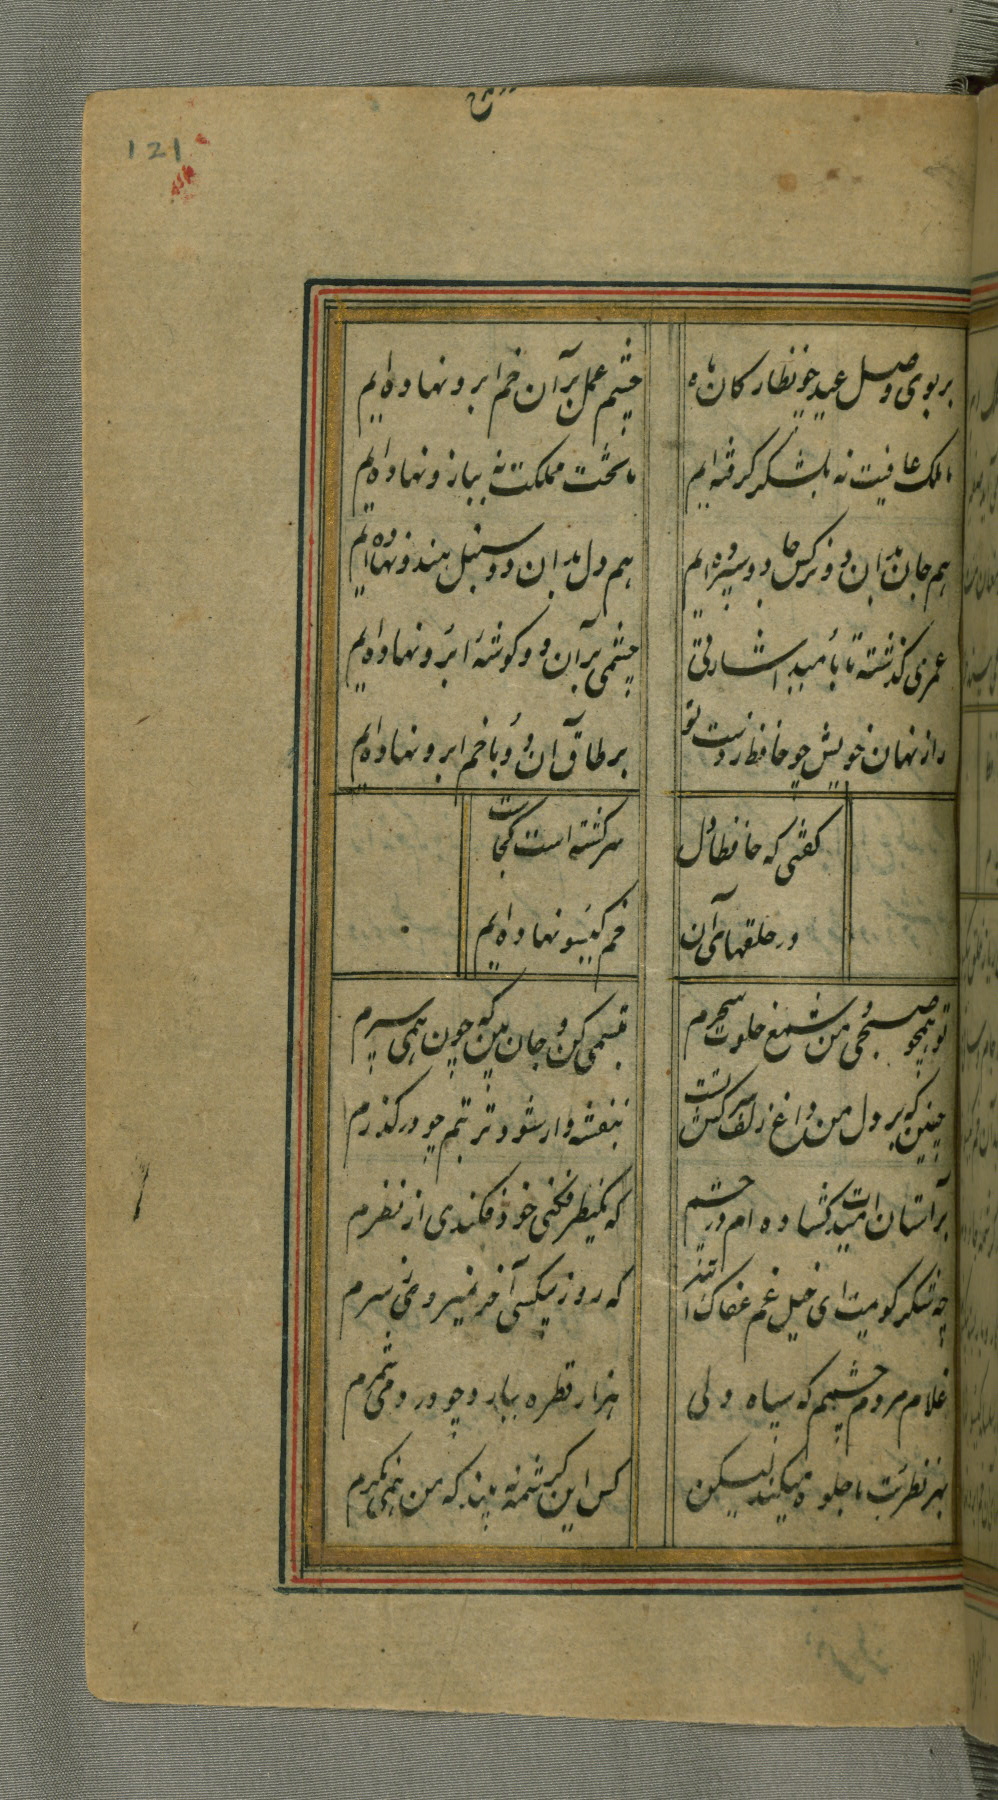 121
بر بوی وصل عید چو نظارکان ماه چشم عمل بر آن خم ابرو نهاده‌ایم
ما ملک عافیت نه بلشکر گرفته‌ایم ما تخت مملکت نه ببازو نهاده‌ایم
هم جان بدان دو نرکس جادو سپرده‌ایم هم دل بدان دو سنبل هندو نهاده‌ایم
عمری گذشته تا بامید اشارتی چشمی بر آن دو گوشهٔ ابرو نهاده‌ایم
راز نهان خویش چو حافظ ز دست تو بر طاق آن دو تا خم ابرو نهاده‌ایم
گفتی که حافظا دل سرگشته‌ات کجاست
در حلقهای آن خم گیسو نهاده‌ایم
تو همچو صبحی و من شمع خلوت سحرم تبسمی کن و جان بین که چون همی سپرم
چنین که بر دل من داغ زلف سرکش تست بنفشه وار شود تربتم چو در گذرم
بر آستان امیدت گشاده‌ام در چشم که یکنظر فکنی خود فکندی از نظرم
چه شکر گویمت ای خیل غم عفاک الله که روز بیکسی آخر نمیروی ز سرم
غلام مردم چشمم که سیاه ولی هزار قطره ببارد چو درد می شمرم
بهر نظر بت ما جلوه میکند لیکن کس این کرشمه نه بیند که من همی نگرم